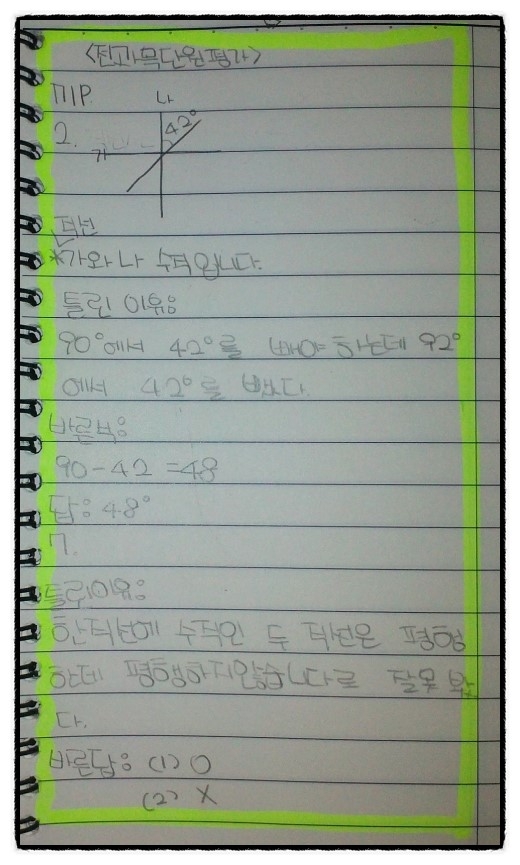 <전과목단원평가>
111P.
나
2.
42°
가
직선
*가와 나 수직입니다.
틀린 이유:
90°에서 42°를 빼야 하는데 92°
에서 42°를 뺐다.
바른식:
90-42=48
답: 48°
7.
틀린이유:
한직선에 수직인 두 직선은 평행
한데 평행하지않습니다로 잘못 봤
다.
바른답: (1) O
(2) X